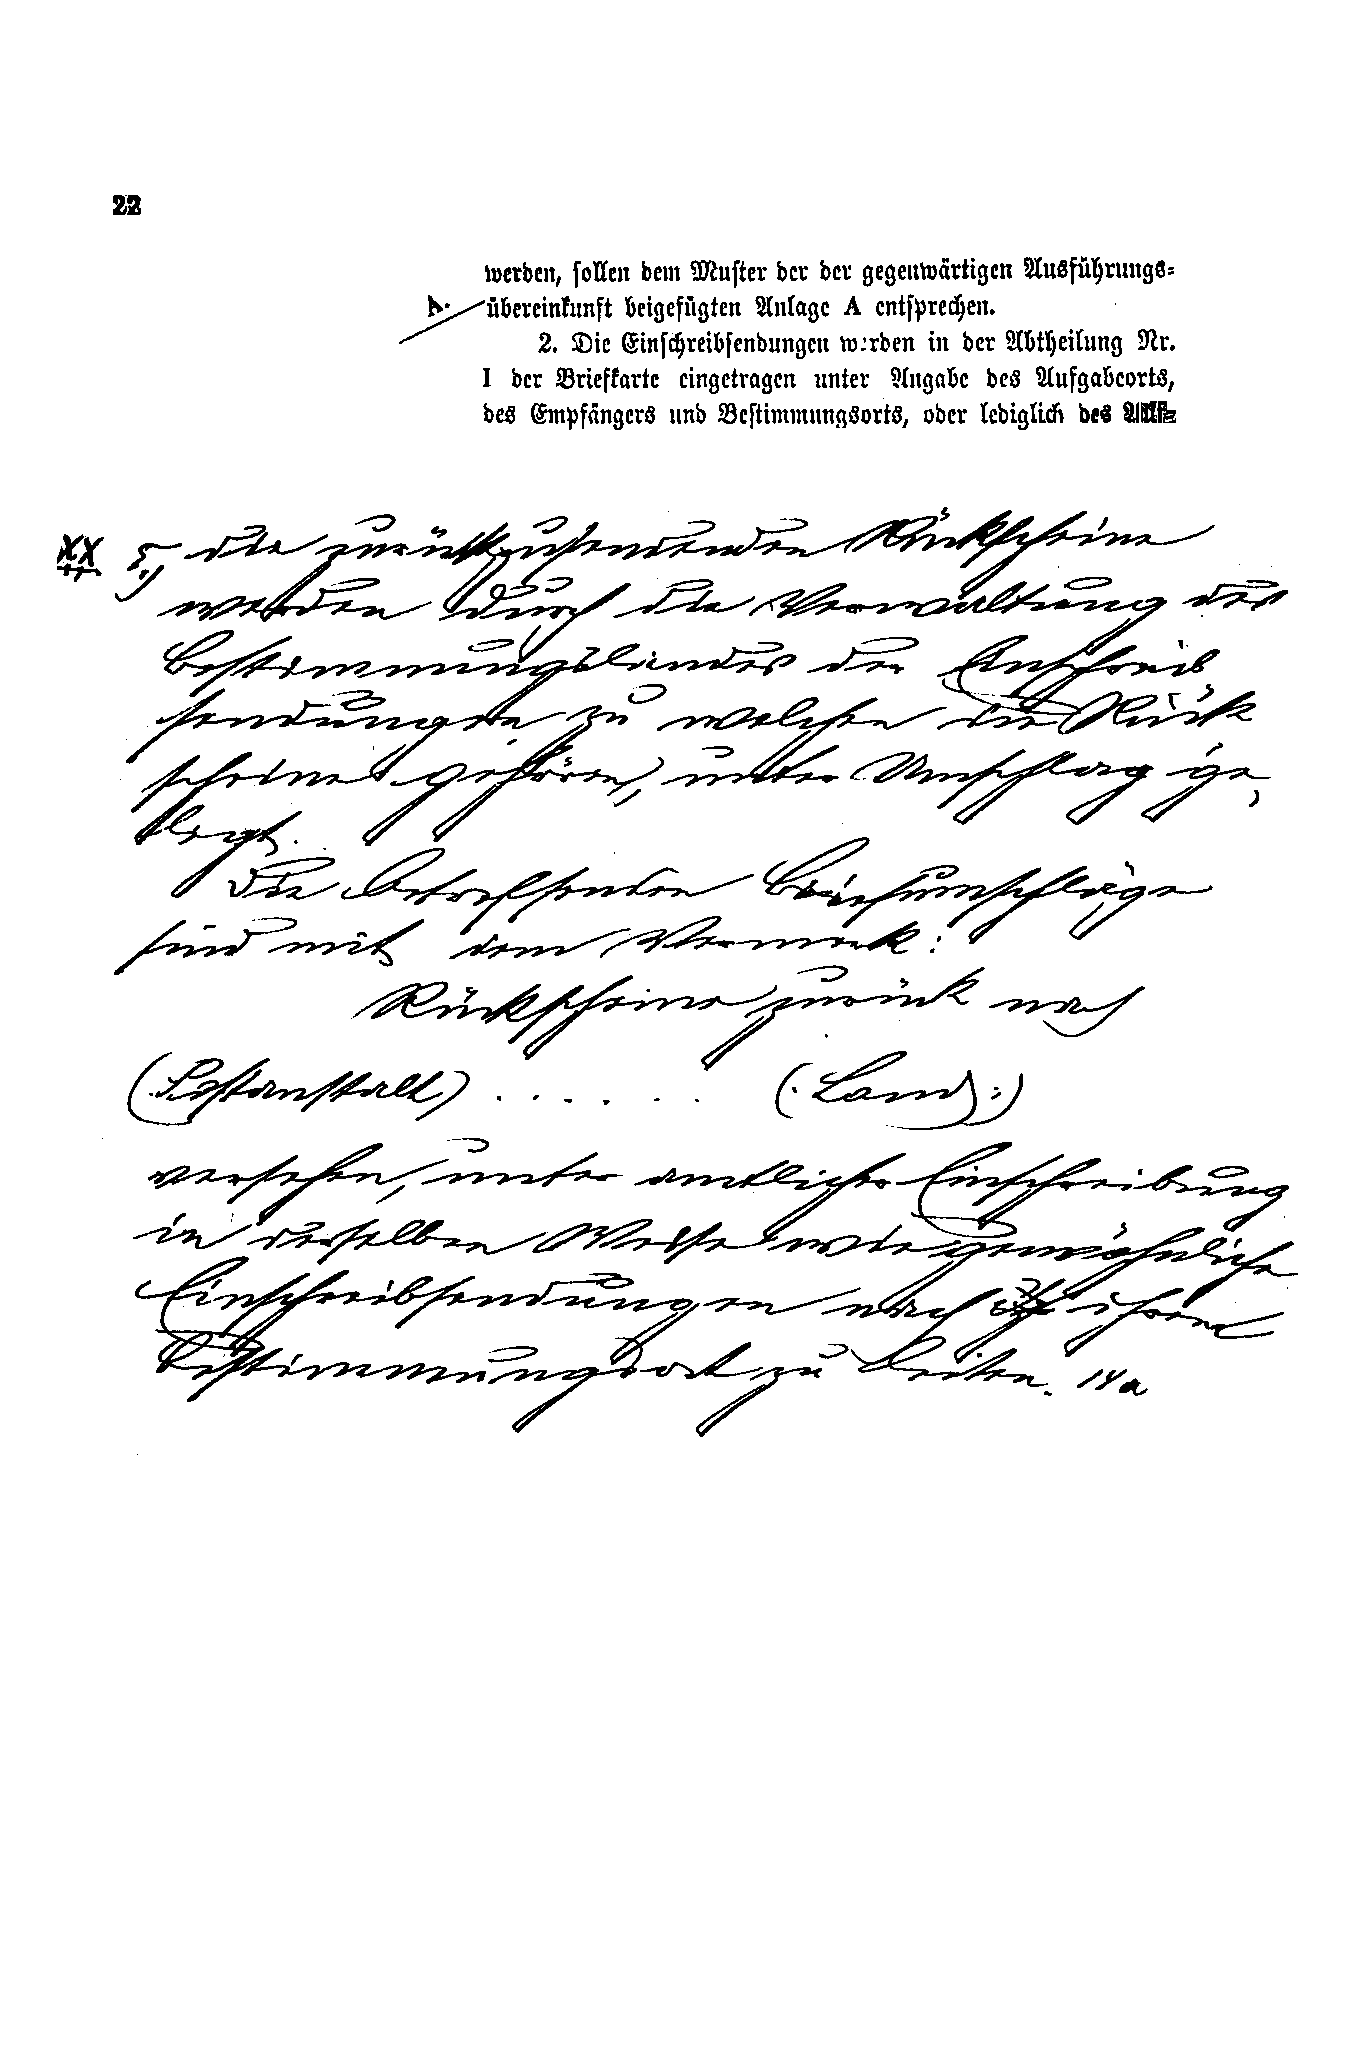 22
werden, sollen dem Muster der der gegenwärtigen Ausführungs=
A. übereinkunft beigefügten Anlage A entsprechen.
2. Die Einschreibsendungen werden in der Abtheilung Nr.
I der Briefkarte eingetragen unter Angabe des Aufgabeorts,
des Empfängers und Bestimmungsorts, oder lediglich des Auf=
XX 5.) die zurückzusendenden Rückscheine
werden durch die Verwaltung des
Bestimmungslandes der Einschreib
sendungen zu welchen die Rück
scheine gehören, unter Umschlag ge,
legt.
Die betreffenden Briefumschläge
sind mit dem Vermerk:
Rückscheine zurück nach
(Postanstalt) . . . . . . (: Land :)
versehen, unter amtlicher Einschreibung
in derselben Weise wie gewöhnliche
Einschreibsendungen nach ihrem
Bestimmungsort zu leiten. 14 a